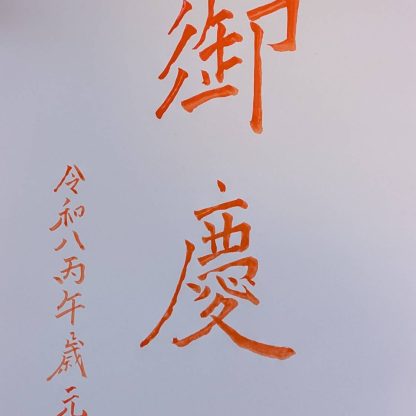 御慶
令和八丙午歳元